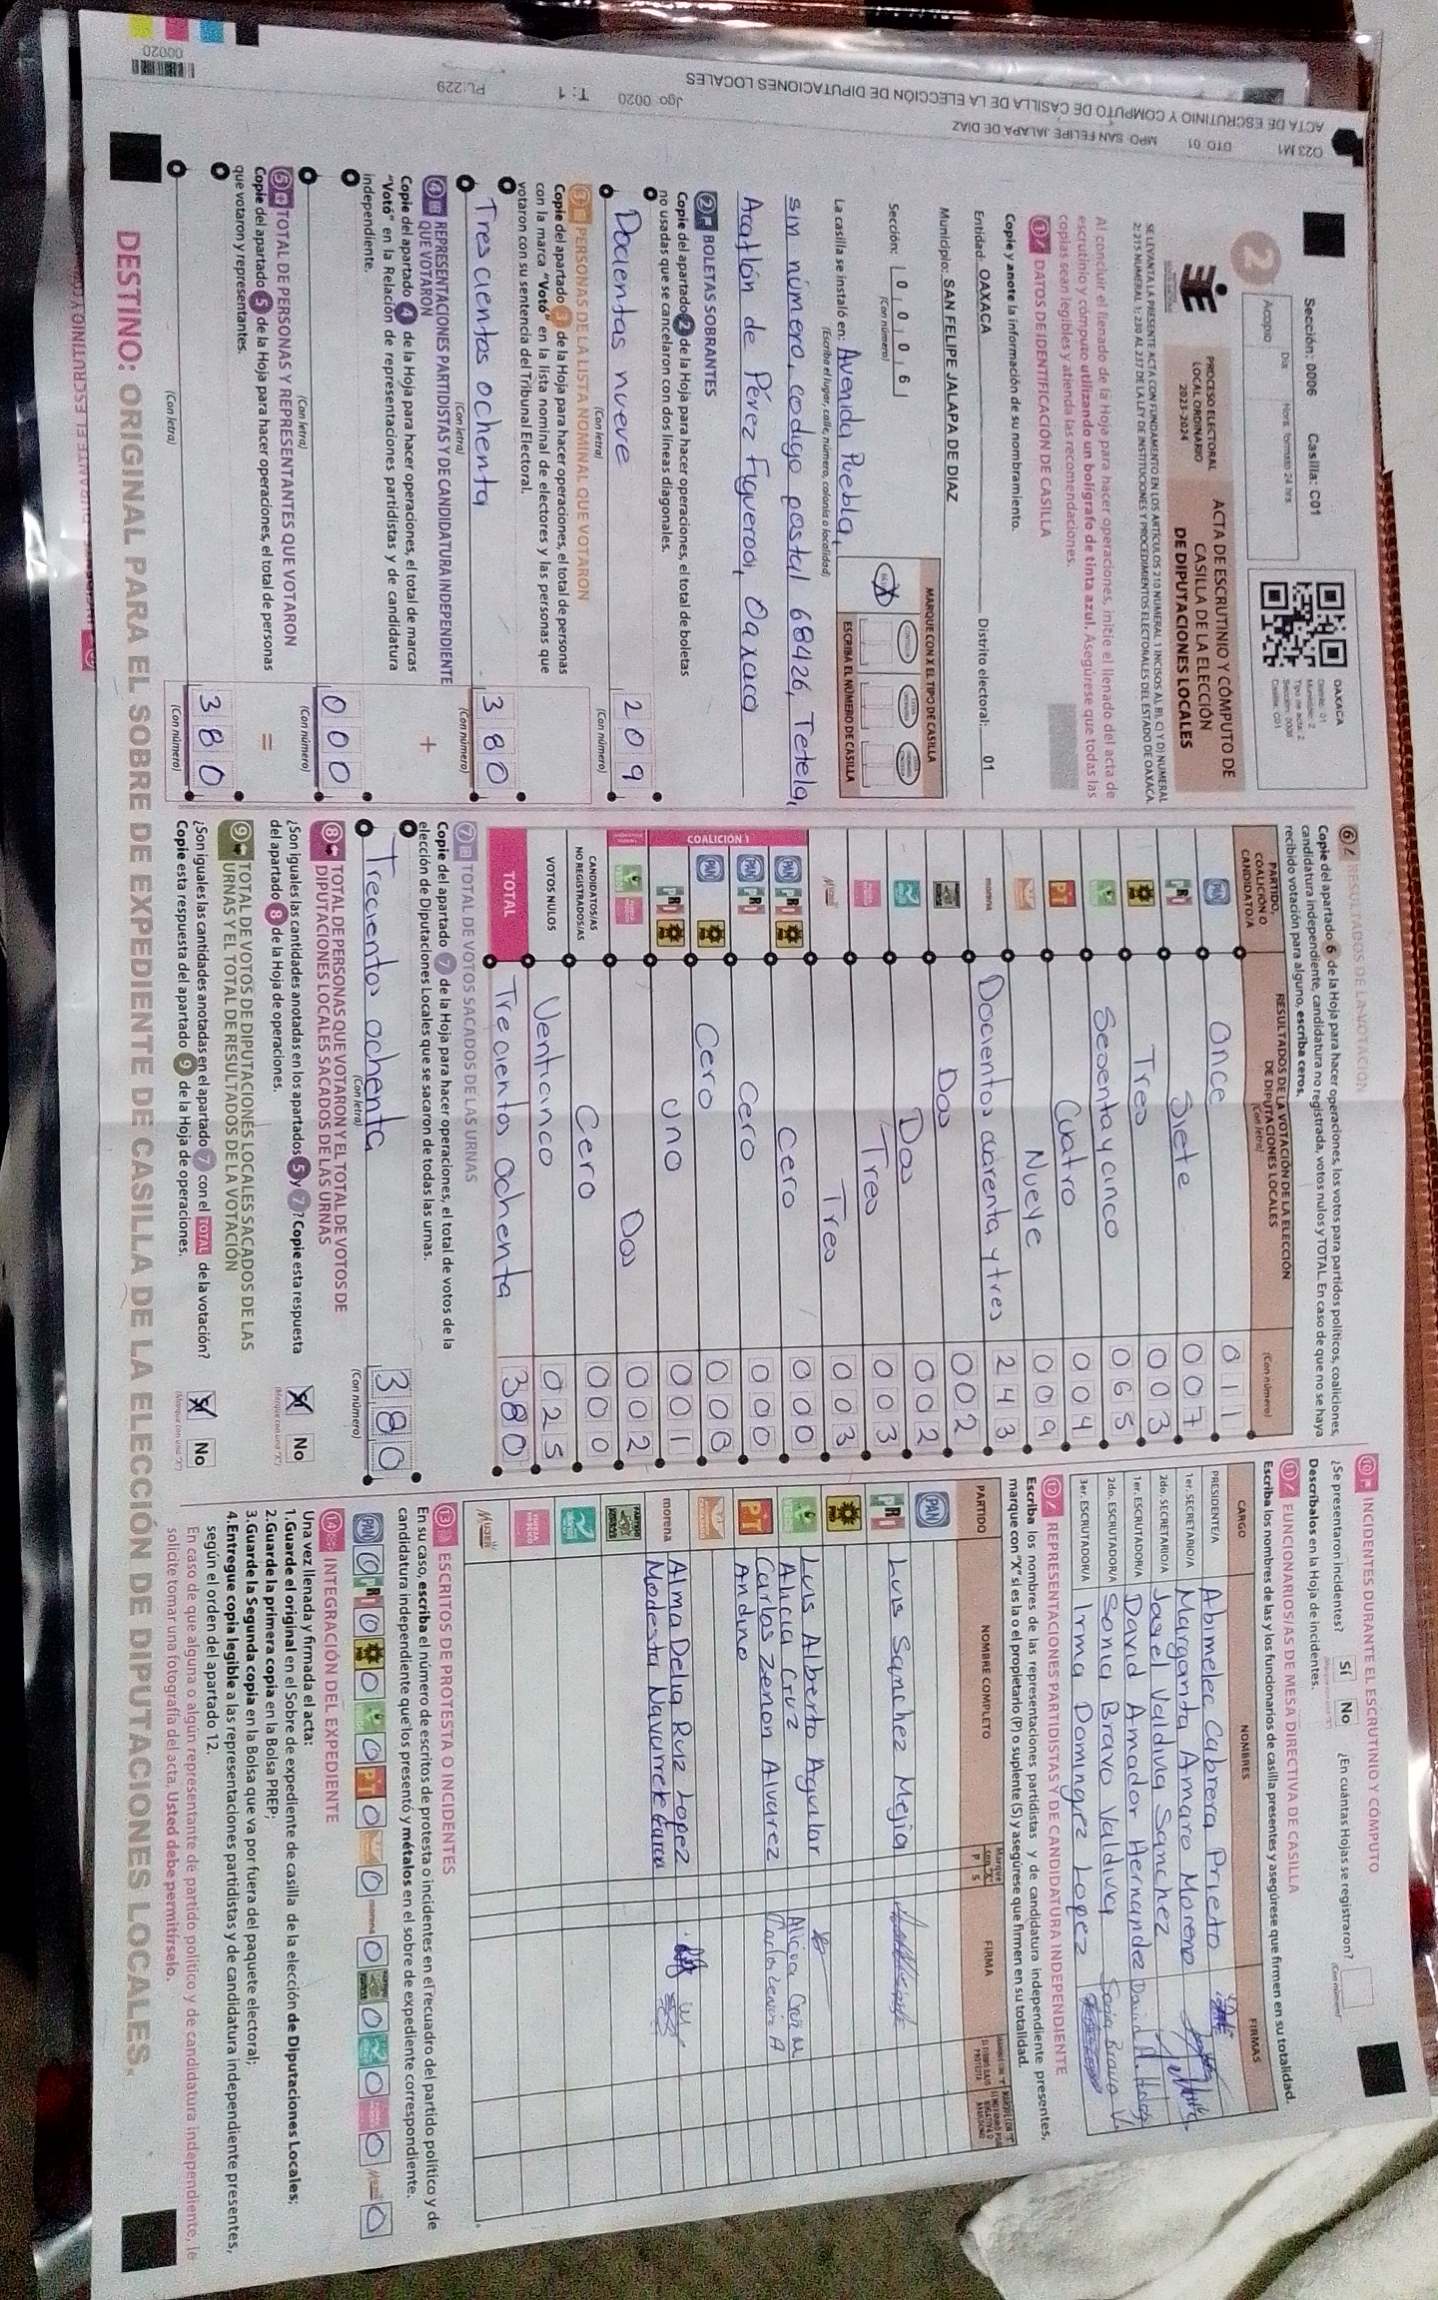 Sección: 0006 Casilla: C01
Acopio
Día: Hora: formato 24 hrs
OAXACA
Distrito: 01
Municipio: 2
Tipo de acta: 2
Sección: 0006
Casilla: C01
2
PROCESO ELECTORAL
LOCAL ORDINARIO
2023-2024
ACTA DE ESCRUTINIO Y CÓMPUTO DE
CASILLA DE LA ELECCIÓN
DE DIPUTACIONES LOCALES
SE LEVANTA LA PRESENTE ACTA CON FUNDAMENTO EN LOS ARTÍCULOS 210 NUMERAL 1 INCISOS A), B), C) Y D) NUMERAL
2; 215 NUMERAL 1; 230 AL 237 DE LA LEY DE INSTITUCIONES Y PROCEDIMIENTOS ELECTORALES DEL ESTADO DE OAXACA.
Al concluir el llenado de la Hoja para hacer operaciones, inicie el llenado del acta de
escrutinio y cómputo utilizando un bolígrafo de tinta azul. Asegúrese que todas las
copias sean legibles y atienda las recomendaciones.
1 DATOS DE IDENTIFICACIÓN DE CASILLA
Copie y anote la información de su nombramiento.
Entidad: OAXACA Distrito electoral: 01
Municipio: SAN FELIPE JALAPA DE DIAZ
Sección: 0 0 0 6
(Con número)
MARQUE CON X EL TIPO DE CASILLA
X
ESCRIBA EL NÚMERO DE CASILLA
La casilla se instaló en: Avenida Puebla,
(Escriba el lugar, calle, número, colonia o localidad)
sin número, codigo postal 68426, Tetela,
Acatlón de Pérez Figueroa, Oaxaca
2 BOLETAS SOBRANTES
Copie del apartado 2 de la Hoja para hacer operaciones, el total de boletas
no usadas que se cancelaron con dos líneas diagonales.
Docientas nueve 209
(Con letra) (Con número)
3 PERSONAS DE LA LISTA NOMINAL QUE VOTARON
Copie del apartado 3 de la Hoja para hacer operaciones, el total de personas
con la marca "Votó" en la lista nominal de electores y las personas que
votaron con su sentencia del Tribunal Electoral.
Tres cientos ochenta 380
(Con letra) (Con número)
4 REPRESENTACIONES PARTIDISTAS Y DE CANDIDATURA INDEPENDIENTE
QUE VOTARON
+
Copie del apartado 4 de la Hoja para hacer operaciones, el total de marcas
"Votó" en la Relación de representaciones partidistas y de candidatura
independiente.
000
(Con letra) (Con número)
5 TOTAL DE PERSONAS Y REPRESENTANTES QUE VOTARON
=
Copie del apartado 5 de la Hoja para hacer operaciones, el total de personas
que votaron y representantes.
380
(Con letra) (Con número)
6 RESULTADOS DE LA VOTACIÓN
Copie del apartado 6 de la Hoja para hacer operaciones, los votos para partidos políticos, coaliciones,
candidatura independiente, candidatura no registrada, votos nulos y TOTAL. En caso de que no se haya
recibido votación para alguno, escriba ceros.
PARTIDO,
COALICIÓN O
CANDIDATO/A
RESULTADOS DE LA VOTACIÓN DE LA ELECCIÓN
DE DIPUTACIONES LOCALES
(Con letra)
(Con número)
PAN Once 011
PRI Siete 007
PRD Tres 003
Sesenta y cinco 065
PT Cuatro 004
Nueve 009
morena Docientos cuarenta y tres 243
Dos 002
Dos 002
Tres 003
MUJER Tres 003
COALICIÓN 1
PAN PRI PRD Cero 000
PAN PRI Cero 000
PAN PRD Cero 000
PRI PRD Uno 001
Dos 002
CANDIDATOS/AS
NO REGISTRADOS/AS
Cero 000
VOTOS NULOS Venticinco 025
TOTAL Trecientos Ochenta 380
7 TOTAL DE VOTOS SACADOS DE LAS URNAS
Copie del apartado 7 de la Hoja para hacer operaciones, el total de votos de la
elección de Diputaciones Locales que se sacaron de todas las urnas.
Trecientos ochenta 380
(Con letra) (Con número)
8 TOTAL DE PERSONAS QUE VOTARON Y EL TOTAL DE VOTOS DE
DIPUTACIONES LOCALES SACADOS DE LAS URNAS
¿Son iguales las cantidades anotadas en los apartados 5 y 7? Copie esta respuesta
del apartado 8 de la Hoja de operaciones.
X No
9 TOTAL DE VOTOS DE DIPUTACIONES LOCALES SACADOS DE LAS
URNAS Y EL TOTAL DE RESULTADOS DE LA VOTACIÓN
¿Son iguales las cantidades anotadas en el apartado 7 con el TOTAL de la votación?
Copie esta respuesta del apartado 9 de la Hoja de operaciones.
X No
(Marque con una "X")
10 INCIDENTES DURANTE EL ESCRUTINIO Y CÓMPUTO
¿Se presentaron incidentes? Sí No ¿En cuántas Hojas se registraron?
Descríbalos en la Hoja de incidentes.
11 FUNCIONARIOS/AS DE MESA DIRECTIVA DE CASILLA
Escriba los nombres de las y los funcionarios de casilla presentes y asegúrese que firmen en su totalidad.
CARGO NOMBRES FIRMAS
PRESIDENTE/A Abimelec Cabrera Prieto
1er. SECRETARIO/A Margarita Amaro Moreno
2do. SECRETARIO/A Jasel Valdivia Sanchez
1er. ESCRUTADOR/A David Amador Hernandez
2do. ESCRUTADOR/A Sonia Bravo Valdivia Sonia Bravo V.
3er. ESCRUTADOR/A Irma Dominguez Lopez
12 REPRESENTACIONES PARTIDISTAS Y DE CANDIDATURA INDEPENDIENTE
Escriba los nombres de las representaciones partidistas y de candidatura independiente presentes,
marque con "X" si es la o el propietario (P) o suplente (S) y asegúrese que firmen en su totalidad.
PARTIDO NOMBRE COMPLETO P S FIRMA
PAN
PRI Luis Sanchez Mejia
PRD
VERDE Luis Alberto Aguilar
Alicia Cruz
PT Carlos Zenon Alvarez
Andino
morena Alma Delia Ruiz Lopez
Modesta Navarrete
MUJER
13 ESCRITOS DE PROTESTA O INCIDENTES
En su caso, escriba el número de escritos de protesta o incidentes en el recuadro del partido político y de
candidatura independiente que los presentó y métalos en el sobre de expediente correspondiente.
PAN 0 PRI 0 PRD 0 0 PT 0 0 morena 0 0 0 0 MUJER 0
14 INTEGRACIÓN DEL EXPEDIENTE
Una vez llenada y firmada el acta:
1. Guarde el original en el Sobre de expediente de casilla de la elección de Diputaciones Locales;
2. Guarde la primera copia en la Bolsa PREP;
3. Guarde la Segunda copia en la Bolsa que va por fuera del paquete electoral;
4. Entregue copia legible a las representaciones partidistas y de candidatura independiente presentes,
según el orden del apartado 12.
En caso de que alguna o algún representante de partido político y de candidatura independiente, le
solicite tomar una fotografía del acta, Usted debe permitírselo.
DESTINO: ORIGINAL PARA EL SOBRE DE EXPEDIENTE DE CASILLA DE LA ELECCIÓN DE DIPUTACIONES LOCALES.
O23 M1 DTO 01 MPO SAN FELIPE JALAPA DE DIAZ Jgo. 0020 T: 1 PL:229
ACTA DE ESCRUTINIO Y CÓMPUTO DE CASILLA DE LA ELECCIÓN DE DIPUTACIONES LOCALES
00020